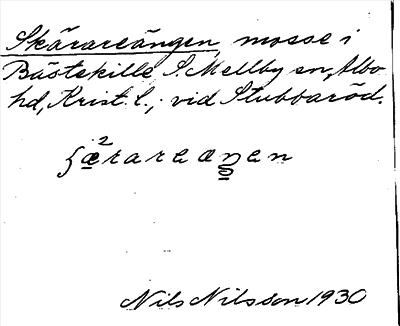 Skärareängen, mosse i
Bästekille, S. Mellby sn, Albo
hd, Krist. l., vid Stubbaröd.
2
ʃærareaŋen
Nils Nilsson 1930